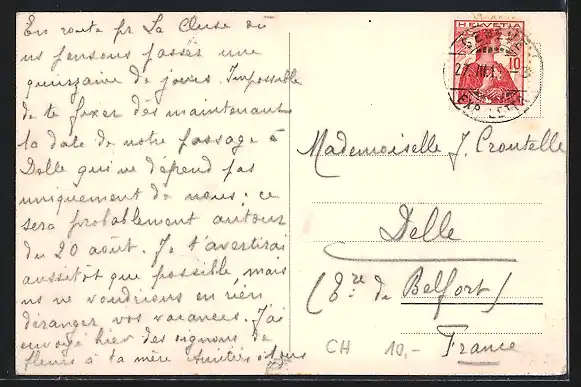 En route pr La Cluse où
ns pensons passer une
quinzaine de jours. Impossible
de te fixer dès maintenant
la date de notre passage à
Delle qui ne dépend pas
uniquement de nous; ce
sera probablement autour
du 20 août. Je t'avertirai
aussitôt que possible, mais
ns ne voudrions en rien
déranger vos vacances. J'ai
envoyé hier des oignons de
fleurs à ta mère Amitiés à tous
HELVETIA
10
GENÈVE
EXP. LETTR.
Mademoiselle J. Croutelle
Delle
(Tre de Belfort)
France
CH 10,-